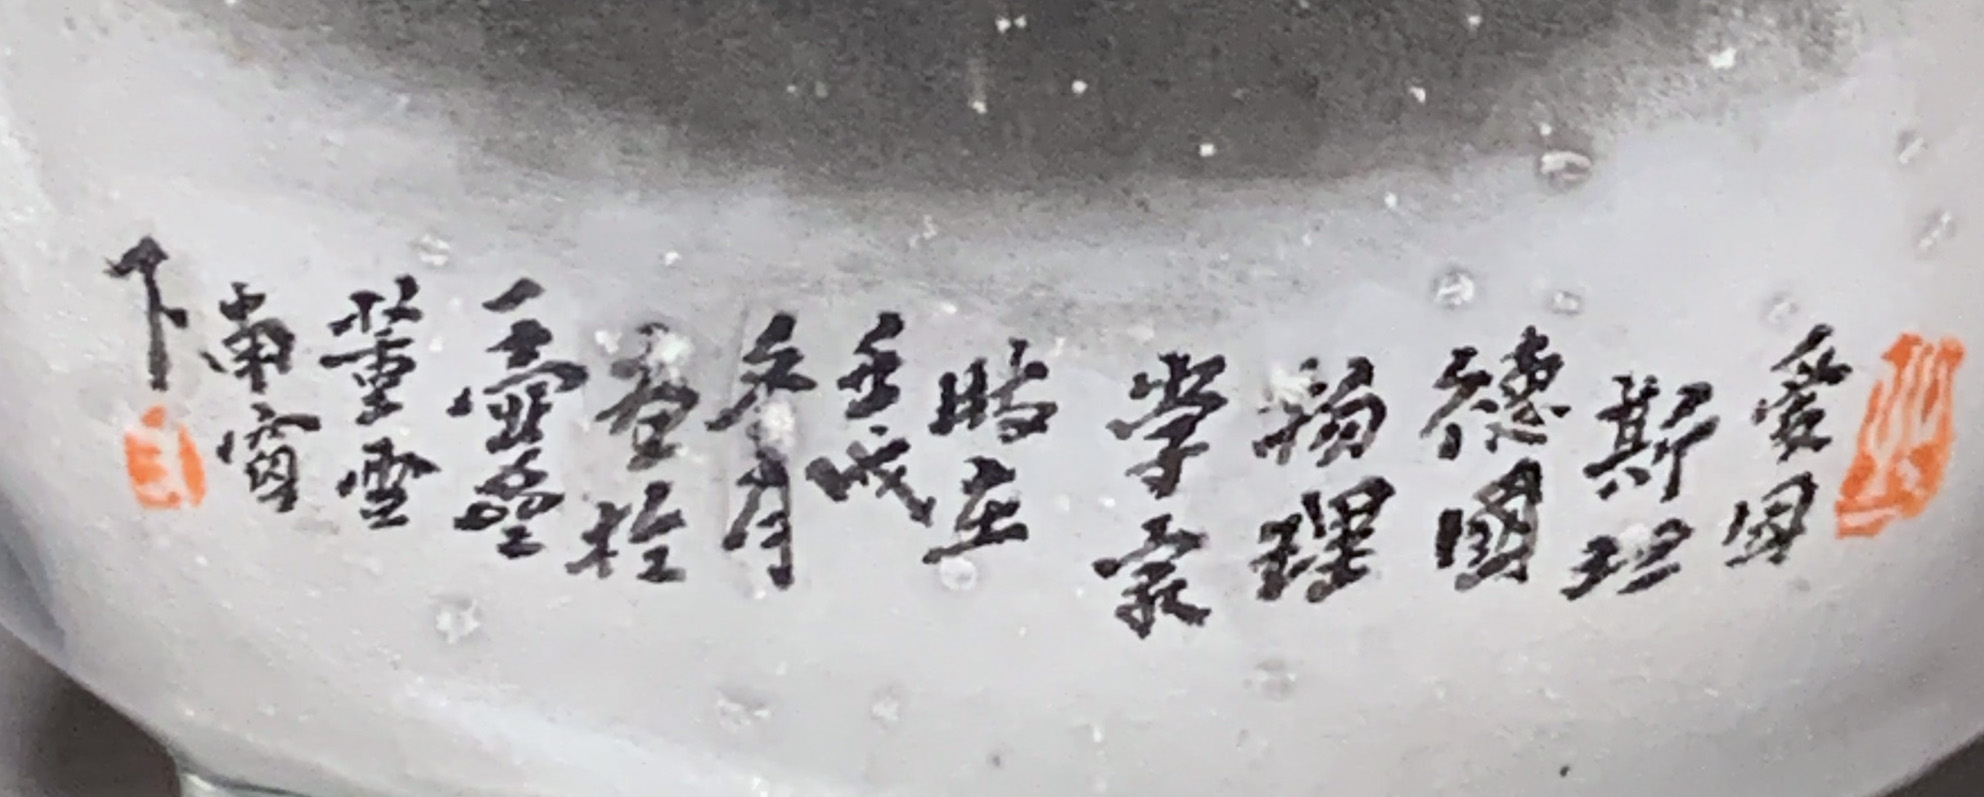 爱因
斯坦
德國
物理
学家
時在
壬戌
冬月
畫於
京
董雪
南窗
下